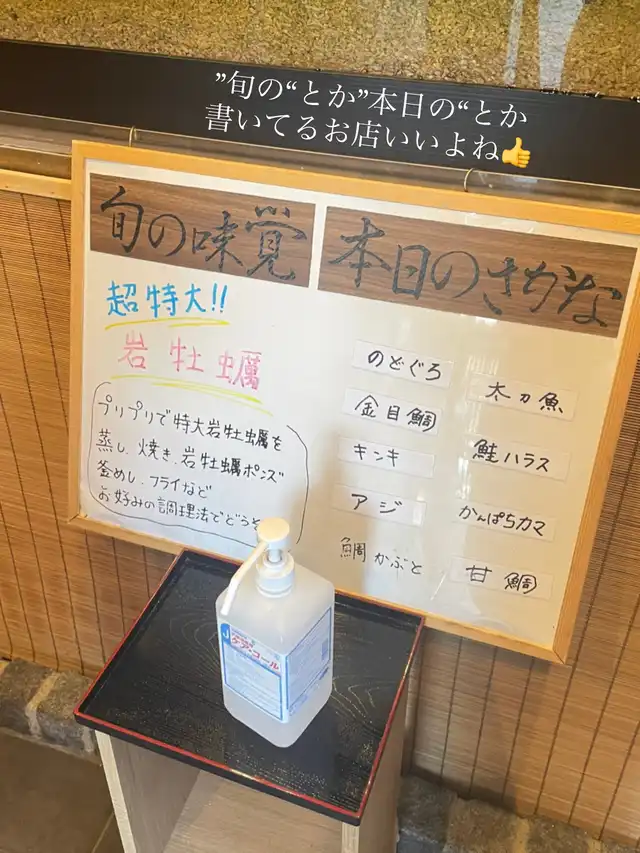 ”旬の“とか”本日の“とか
書いてるお店いいよね👍
旬の味覚
超特大!!
岩牡蠣
プリプリで特大岩牡蠣を
蒸し、焼き、岩牡蠣ポンズ
釜めし、フライなど
お好みの調理法でどうぞ
本日のさかな
のどぐろ
金目鯛
キンキ
アジ
鯛かぶと
太刀魚
鮭ハラス
かんぱちカマ
甘鯛
ケア・コール